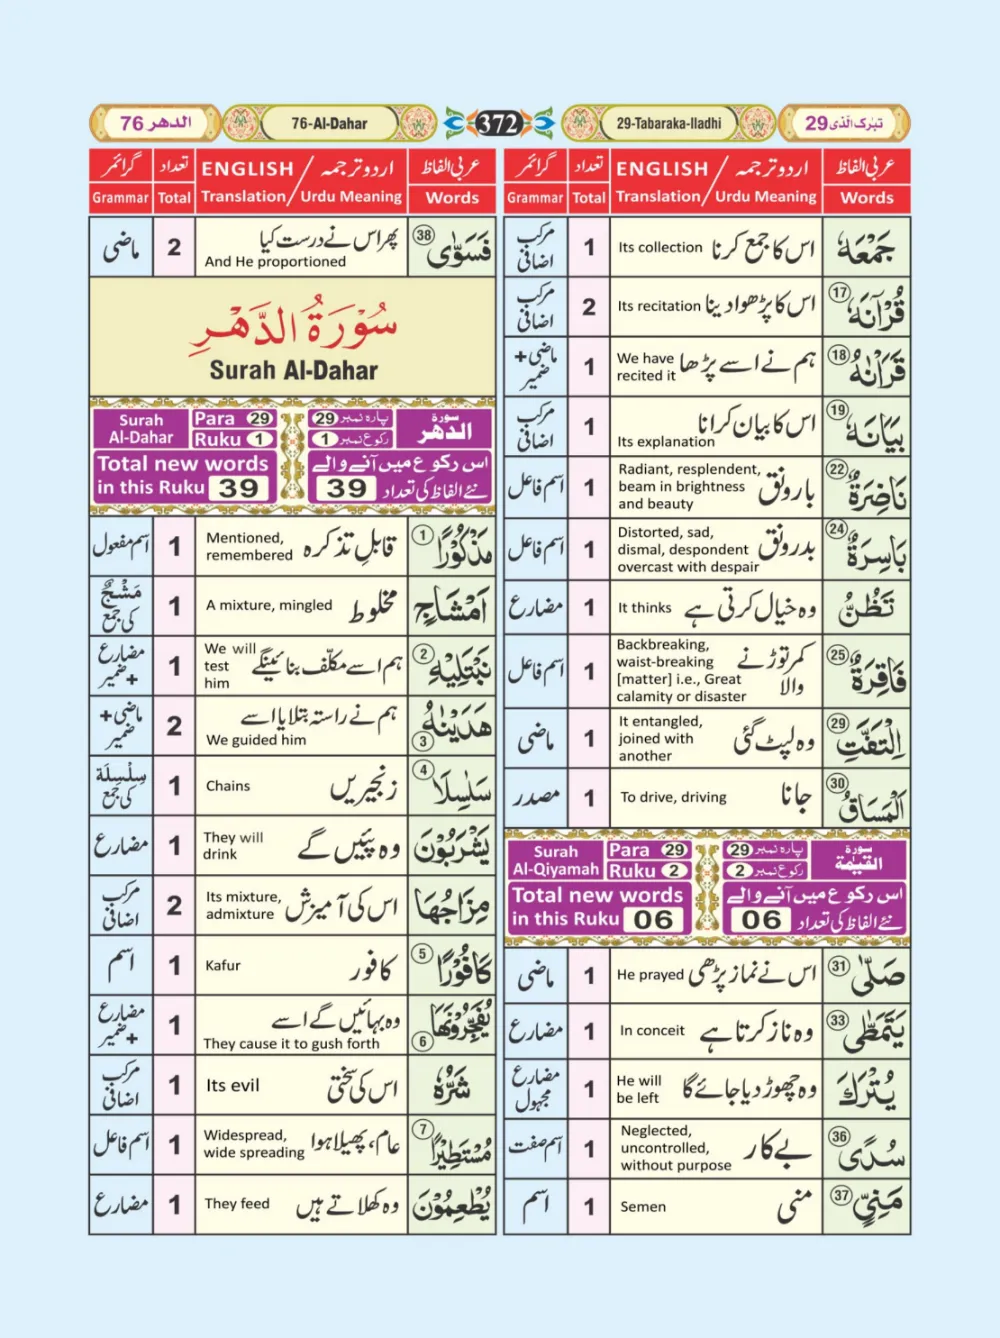 الدھر 76
76-Al-Dahar
372
29-Tabaraka-Iladhi
تبٰرک الّذی 29
عربی الفاظ
اردو ترجمہ / ENGLISH
تعداد
گرائمر
Words
Translation / Urdu Meaning
Total
Grammar
جَمْعَهٗ
اس کا جمع کرنا
Its collection
1
مرکب اضافی
قُرْاٰنَهٗ ⑰
اس کا پڑھوا دینا
Its recitation
2
مرکب اضافی
قَرَاْنٰهُ ⑱
ہم نے اسے پڑھا
We have
recited it
1
ماضی + ضمیر
بَيَانَهٗ ⑲
اس کا بیان کرانا
Its explanation
1
مرکب اضافی
نَاضِرَةٌ ㉒
بارونق
Radiant, resplendent,
beam in brightness
and beauty
1
اسم فاعل
بَاسِرَةٌ ㉔
بدرونق
Distorted, sad,
dismal, despondent
overcast with despair
1
اسم فاعل
تَظُنُّ
وہ خیال کرتی ہے
It thinks
1
مضارع
فَاقِرَةٌ ㉕
کمر توڑنے
والا
Backbreaking,
waist-breaking
[matter] i.e., Great
calamity or disaster
1
اسم فاعل
الْتَفَّتِ ㉙
وہ لپٹ گئی
It entangled,
joined with
another
1
ماضی
الْمَسَاقُ ㉚
جانا
To drive, driving
1
مصدر
Surah
Al-Qiyamah
Para 29
Ruku 2
پارہ نمبر 29
رکوع نمبر 2
سورۃ
القیٰمۃ
Total new words
in this Ruku 06
اس رکوع میں آنے والے
نئے الفاظ کی تعداد 06
صَلّٰى ㉛
اس نے نماز پڑھی
He prayed
1
ماضی
يَتَمَطّٰى ㉝
وہ ناز کرتا ہے
In conceit
1
مضارع
يُتْرَكَ
وہ چھوڑ دیا جائے گا
He will
be left
1
مضارع مجہول
سُدًى ㊱
بے کار
Neglected,
uncontrolled,
without purpose
1
اسم صفت
مَنِيٍّ ㊲
منی
Semen
1
اسم
عربی الفاظ
اردو ترجمہ / ENGLISH
تعداد
گرائمر
Words
Translation / Urdu Meaning
Total
Grammar
فَسَوّٰى ㊳
پھر اس نے درست کیا
And He proportioned
2
ماضی
سُوْرَةُ الدَّهْرِ
Surah Al-Dahar
Surah
Al-Dahar
Para 29
Ruku 1
پارہ نمبر 29
رکوع نمبر 1
سورۃ
الدھر
Total new words
in this Ruku 39
اس رکوع میں آنے والے
نئے الفاظ کی تعداد 39
مَذْكُوْرًا ①
قابلِ تذکرہ
Mentioned,
remembered
1
اسم مفعول
اَمْشَاجٍ
مخلوط
A mixture, mingled
1
مَشْجٌ کی جمع
نَبْتَلِيْهِ ②
ہم اسے مکلّف بنائینگے
We will
test
him
1
مضارع + ضمیر
هَدَيْنٰهُ ③
ہم نے راستہ بتلایا اسے
We guided him
2
ماضی + ضمیر
سَلٰسِلَا ④
زنجیریں
Chains
1
سِلْسِلَة کی جمع
يَشْرَبُوْنَ
وہ پئیں گے
They will
drink
1
مضارع
مِزَاجُهَا
اس کی آمیزش
Its mixture,
admixture
2
مرکب اضافی
كَافُوْرًا ⑤
کافور
Kafur
1
اسم
يُفَجِّرُوْنَهَا ⑥
وہ بہائیں گے اسے
They cause it to gush forth
1
مضارع + ضمیر
شَرُّهٗ
اس کی سختی
Its evil
1
مرکب اضافی
مُسْتَطِيْرًا ⑦
عام، پھیلا ہوا
Widespread,
wide spreading
1
اسم فاعل
يُطْعِمُوْنَ
وہ کھلاتے ہیں
They feed
1
مضارع